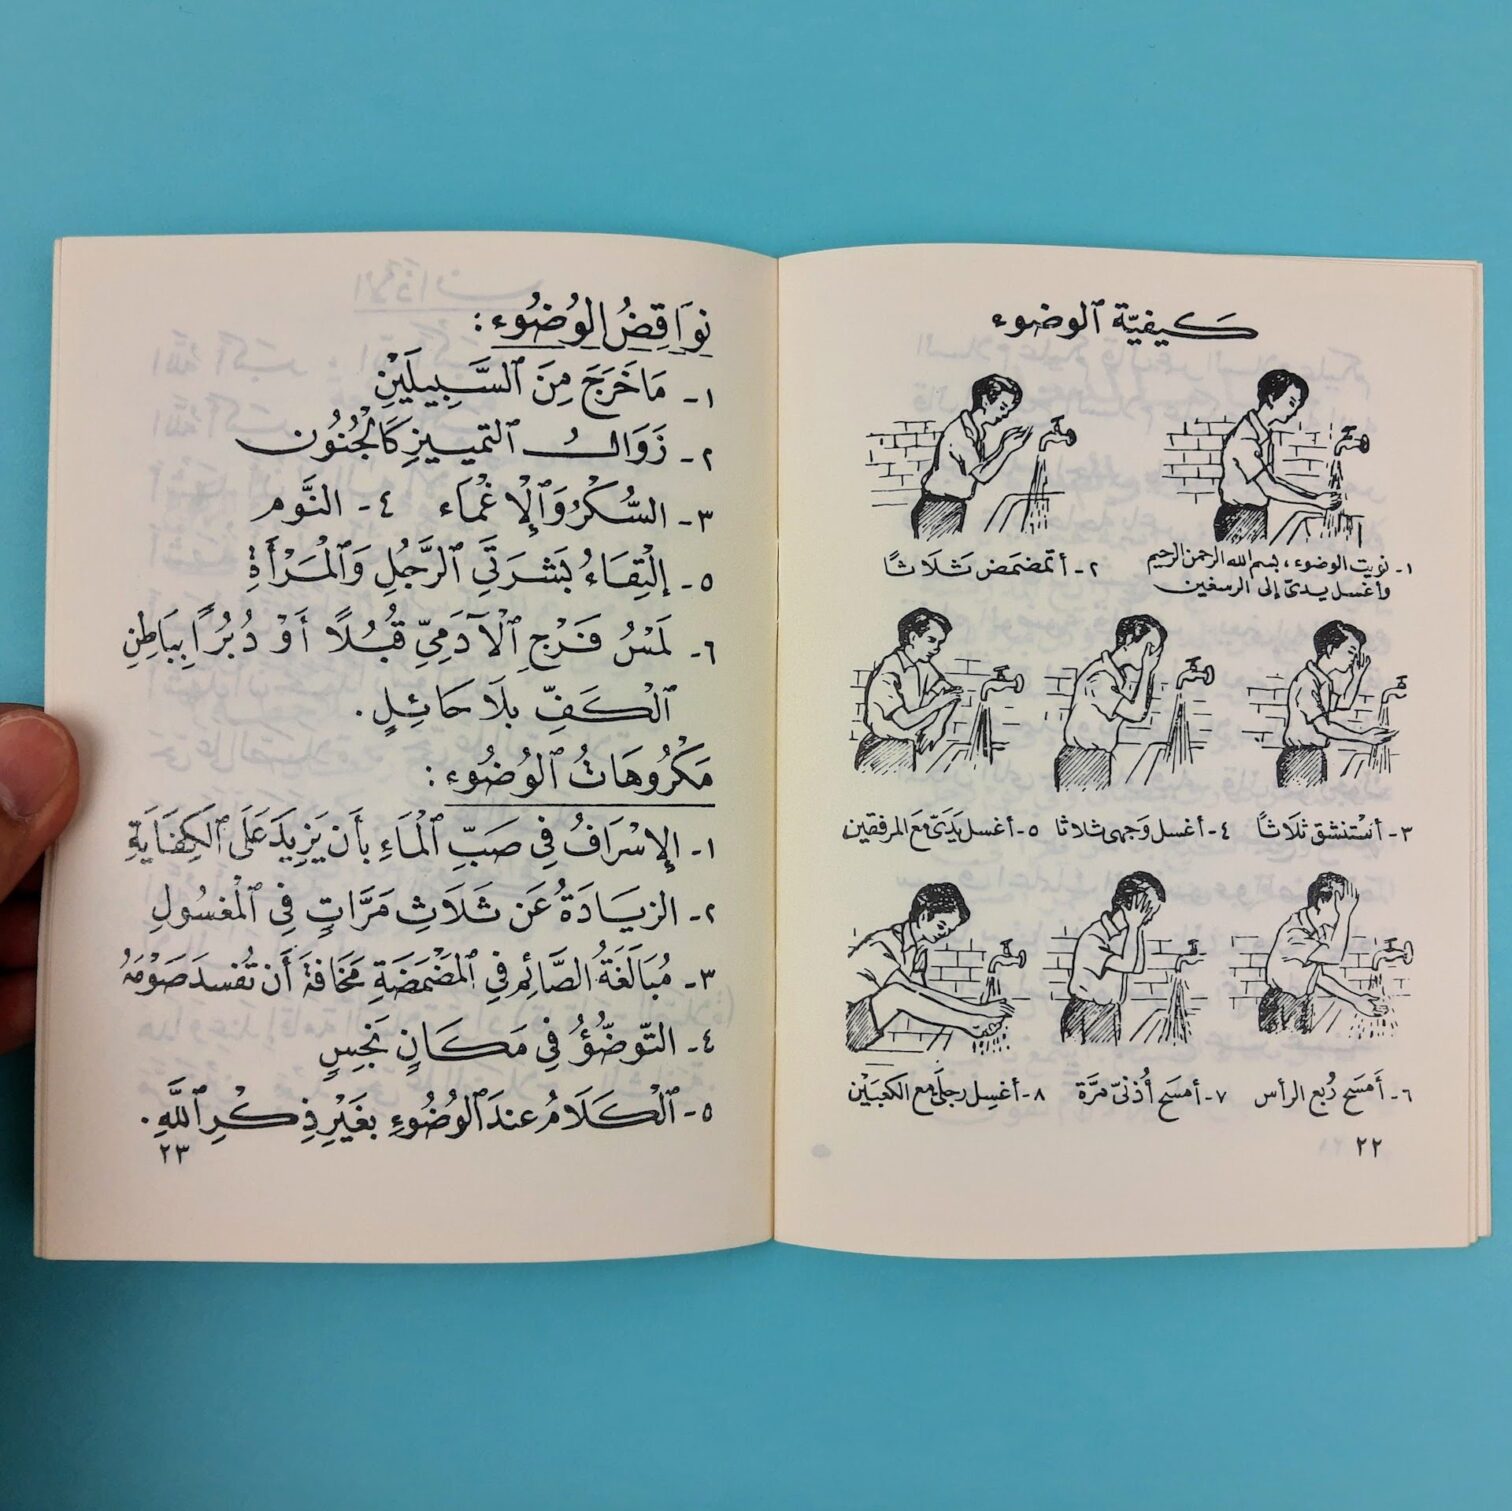 كيفيّة الوضوء
١- نويت الوضوء، بسم الله الرحمن الرحيم
وأغسل يديّ إلى الرسغين
٢- أتمضمض ثَلَاثًا
٣- أنستنشق ثلَاثًا
٤- أغسل وَجهى ثلاثا
٥- أغسل يَدَىّ مَعَ المرفقين
٦- أَمسَح رُبع الرأس
٧- أمسَح أُذنىّ مَرَّة
٨- أغسِل رجلَىّ مع الكعبَيْن
٢٢
نوَاقِضُ الوُضُوء:
١- مَا خَرَجَ مِنَ ٱلسَّبِيلَيْنِ
٢- زَوَالُ ٱلتمييزِ كَالْجُنُون
٣- السُّكْرُ وَٱلْإِغْمَاء ٤- النَّوم
٥- إلْتِقَاءُ بَشَرَتَيِ ٱلرَّجُلِ وَٱلْمَرْأَةِ
٦- لَمْسُ فَرْجِ ٱلْآدَمِيِّ قُبُلًا أَوْ دُبُرًا بِبَاطِنِ
ٱلْكَفِّ بِلَا حَائِلٍ.
مَكْرُوهَاتُ ٱلوُضُوء:
١- الإِسْرَافُ فِي صَبِّ ٱلْمَاءِ بأَن يَزِيدَ عَلَى ٱلكِفَايَةِ
٢- الزيَادَةُ عَن ثَلَاثِ مَرَّاتٍ فِي ٱلْمَغسُولِ
٣- مُبَالَغَةُ الصَّائِم فِي ٱلمَضْمَضَةِ مَخَافةَ أَن تُفسدَ صَوْمَهُ
٤- التّوَضُّؤُ فِي مَكَانٍ نَجِسٍ
٥- ٱلْكَلَامُ عندَ ٱلوُضُوءِ بغَيْرِ ذِكْرِ ٱللَّهِ.
٢٣